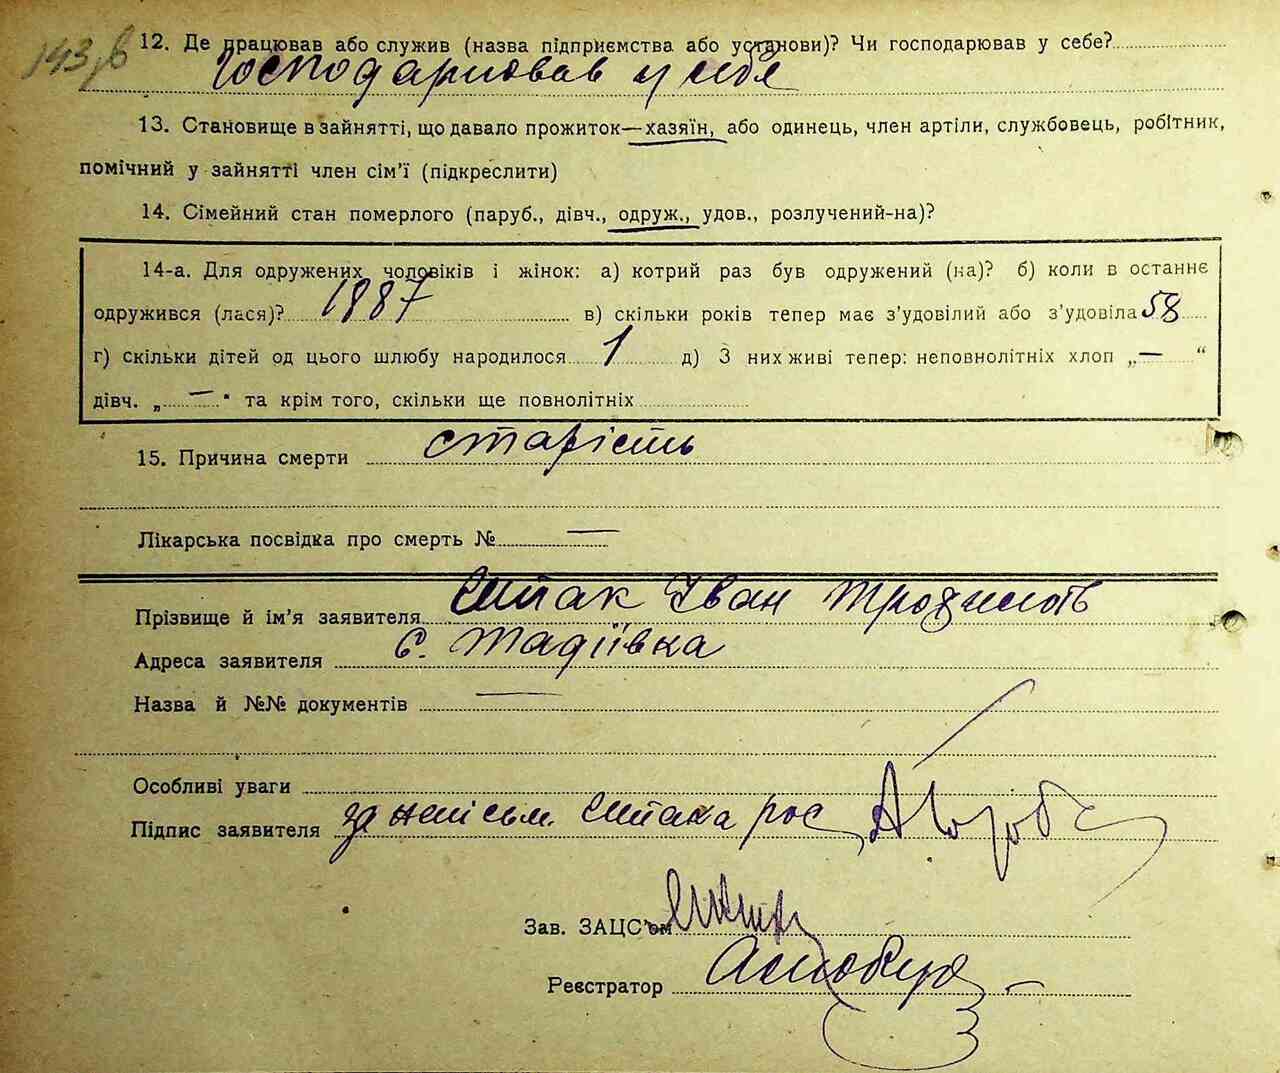 143 зв
12. Де працював або служив (назва підприємства або установи)? Чи господарював у себе?
Господарював у себе
13. Становище в зайнятті, що давало прожиток—хазяїн, або одинець, член артіли, службовець, робітник,
помічний у зайнятті член сім’ї (підкреслити)
14. Сімейний стан померлого (паруб., дівч., одруж., удов., розлучений-на)?
14-а. Для одружених чоловіків і жінок: а) котрий раз був одружений (на)? б) коли в останнє
одружився (лася)? 1887 в) скільки років тепер має з’удовілий або з’удовіла 58
г) скільки дітей од цього шлюбу народилося 1 д) З них живі тепер: неповнолітніх хлоп „—“
дівч. „—“ та крім того, скільки ще повнолітніх
15. Причина смерти старість
Лікарська посвідка про смерть № —
Прізвище й ім’я заявителя Шпак Іван
Адреса заявителя с. Тадіївка
Назва й №№ документів —
Особливі уваги
Підпис заявителя за неписьм. Шпака рос
Зав. ЗАЦС’ом
Реєстратор